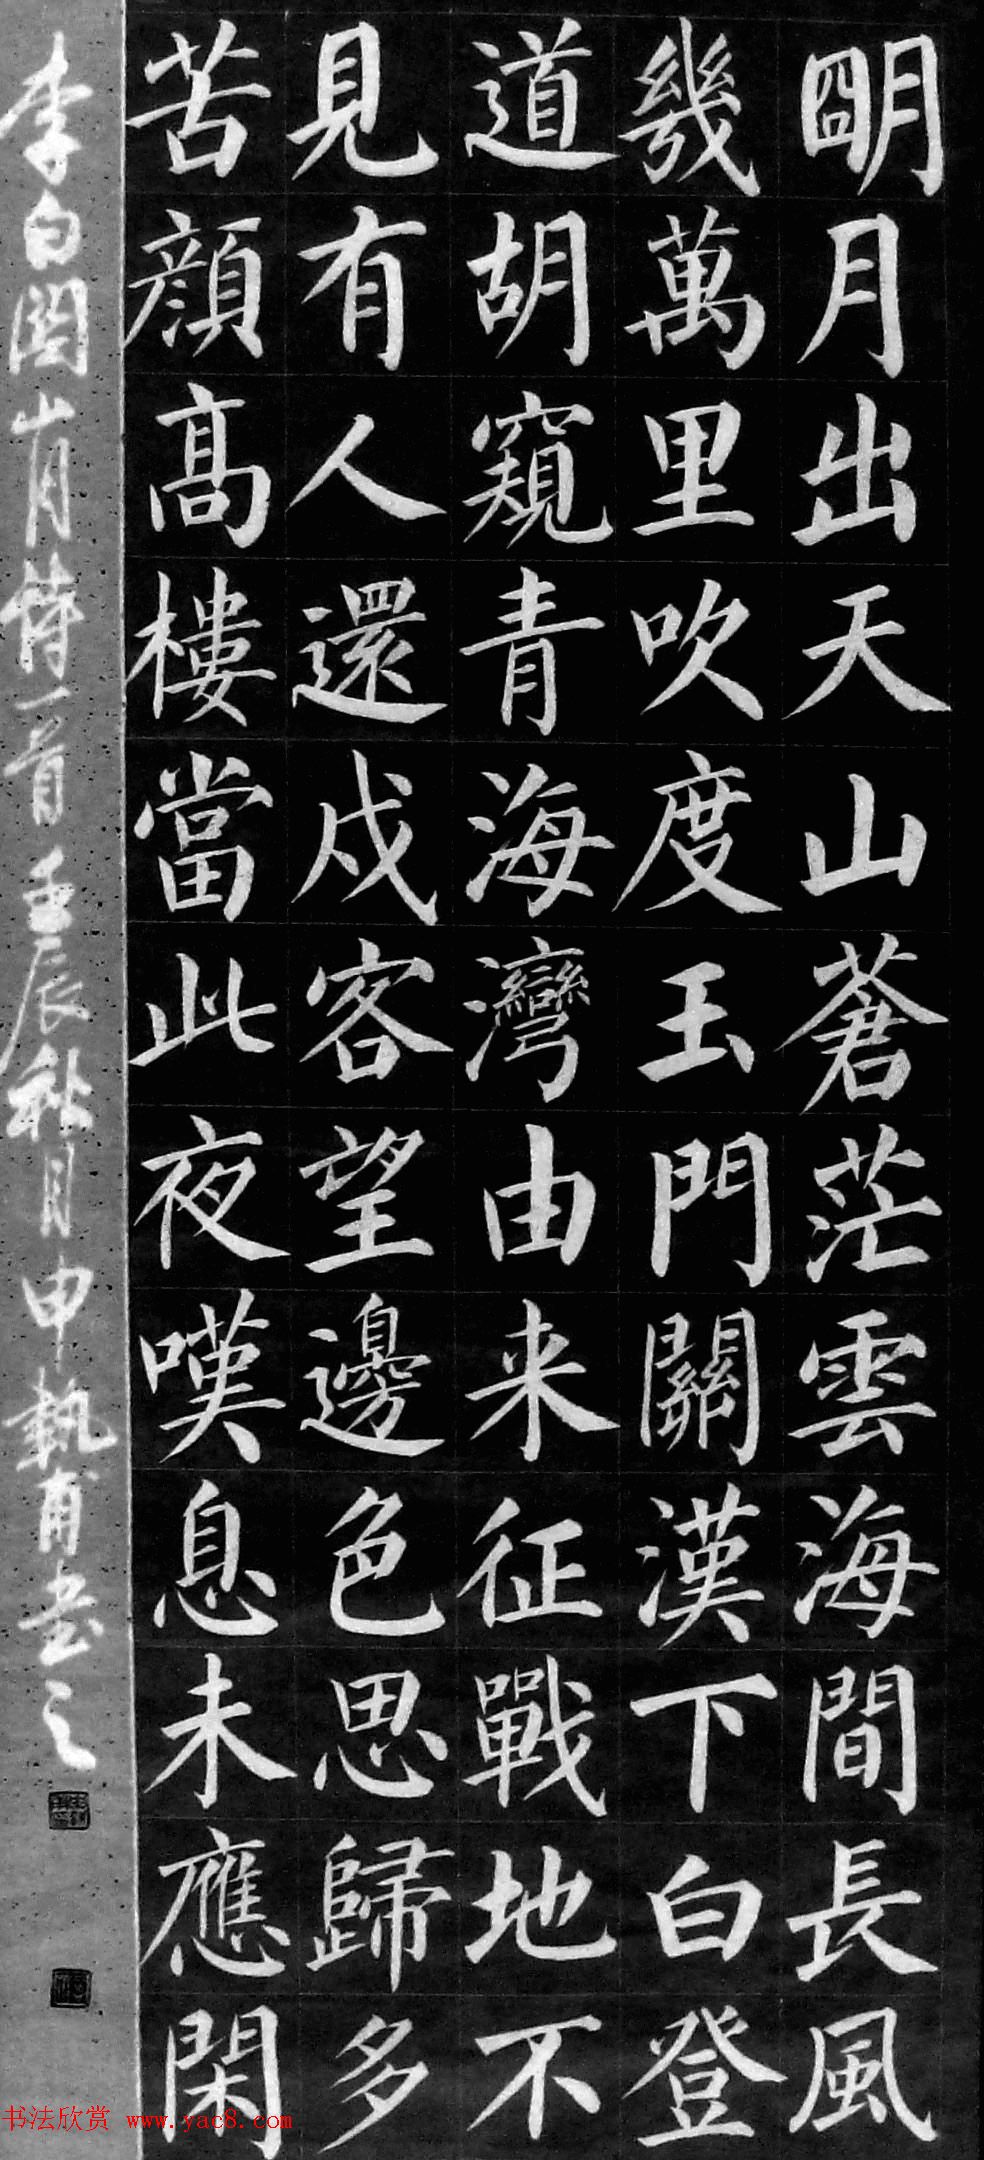 明月出天山蒼茫雲海間長風
幾萬里吹度玉門關漢下白登
道胡窺青海灣由来征戰地不
見有人還戍客望邊色思歸多
苦顏高樓當此夜嘆息未應閑
李白関山月詩一首壬辰秋月申執甫書之
书法欣赏 www.yac8.com